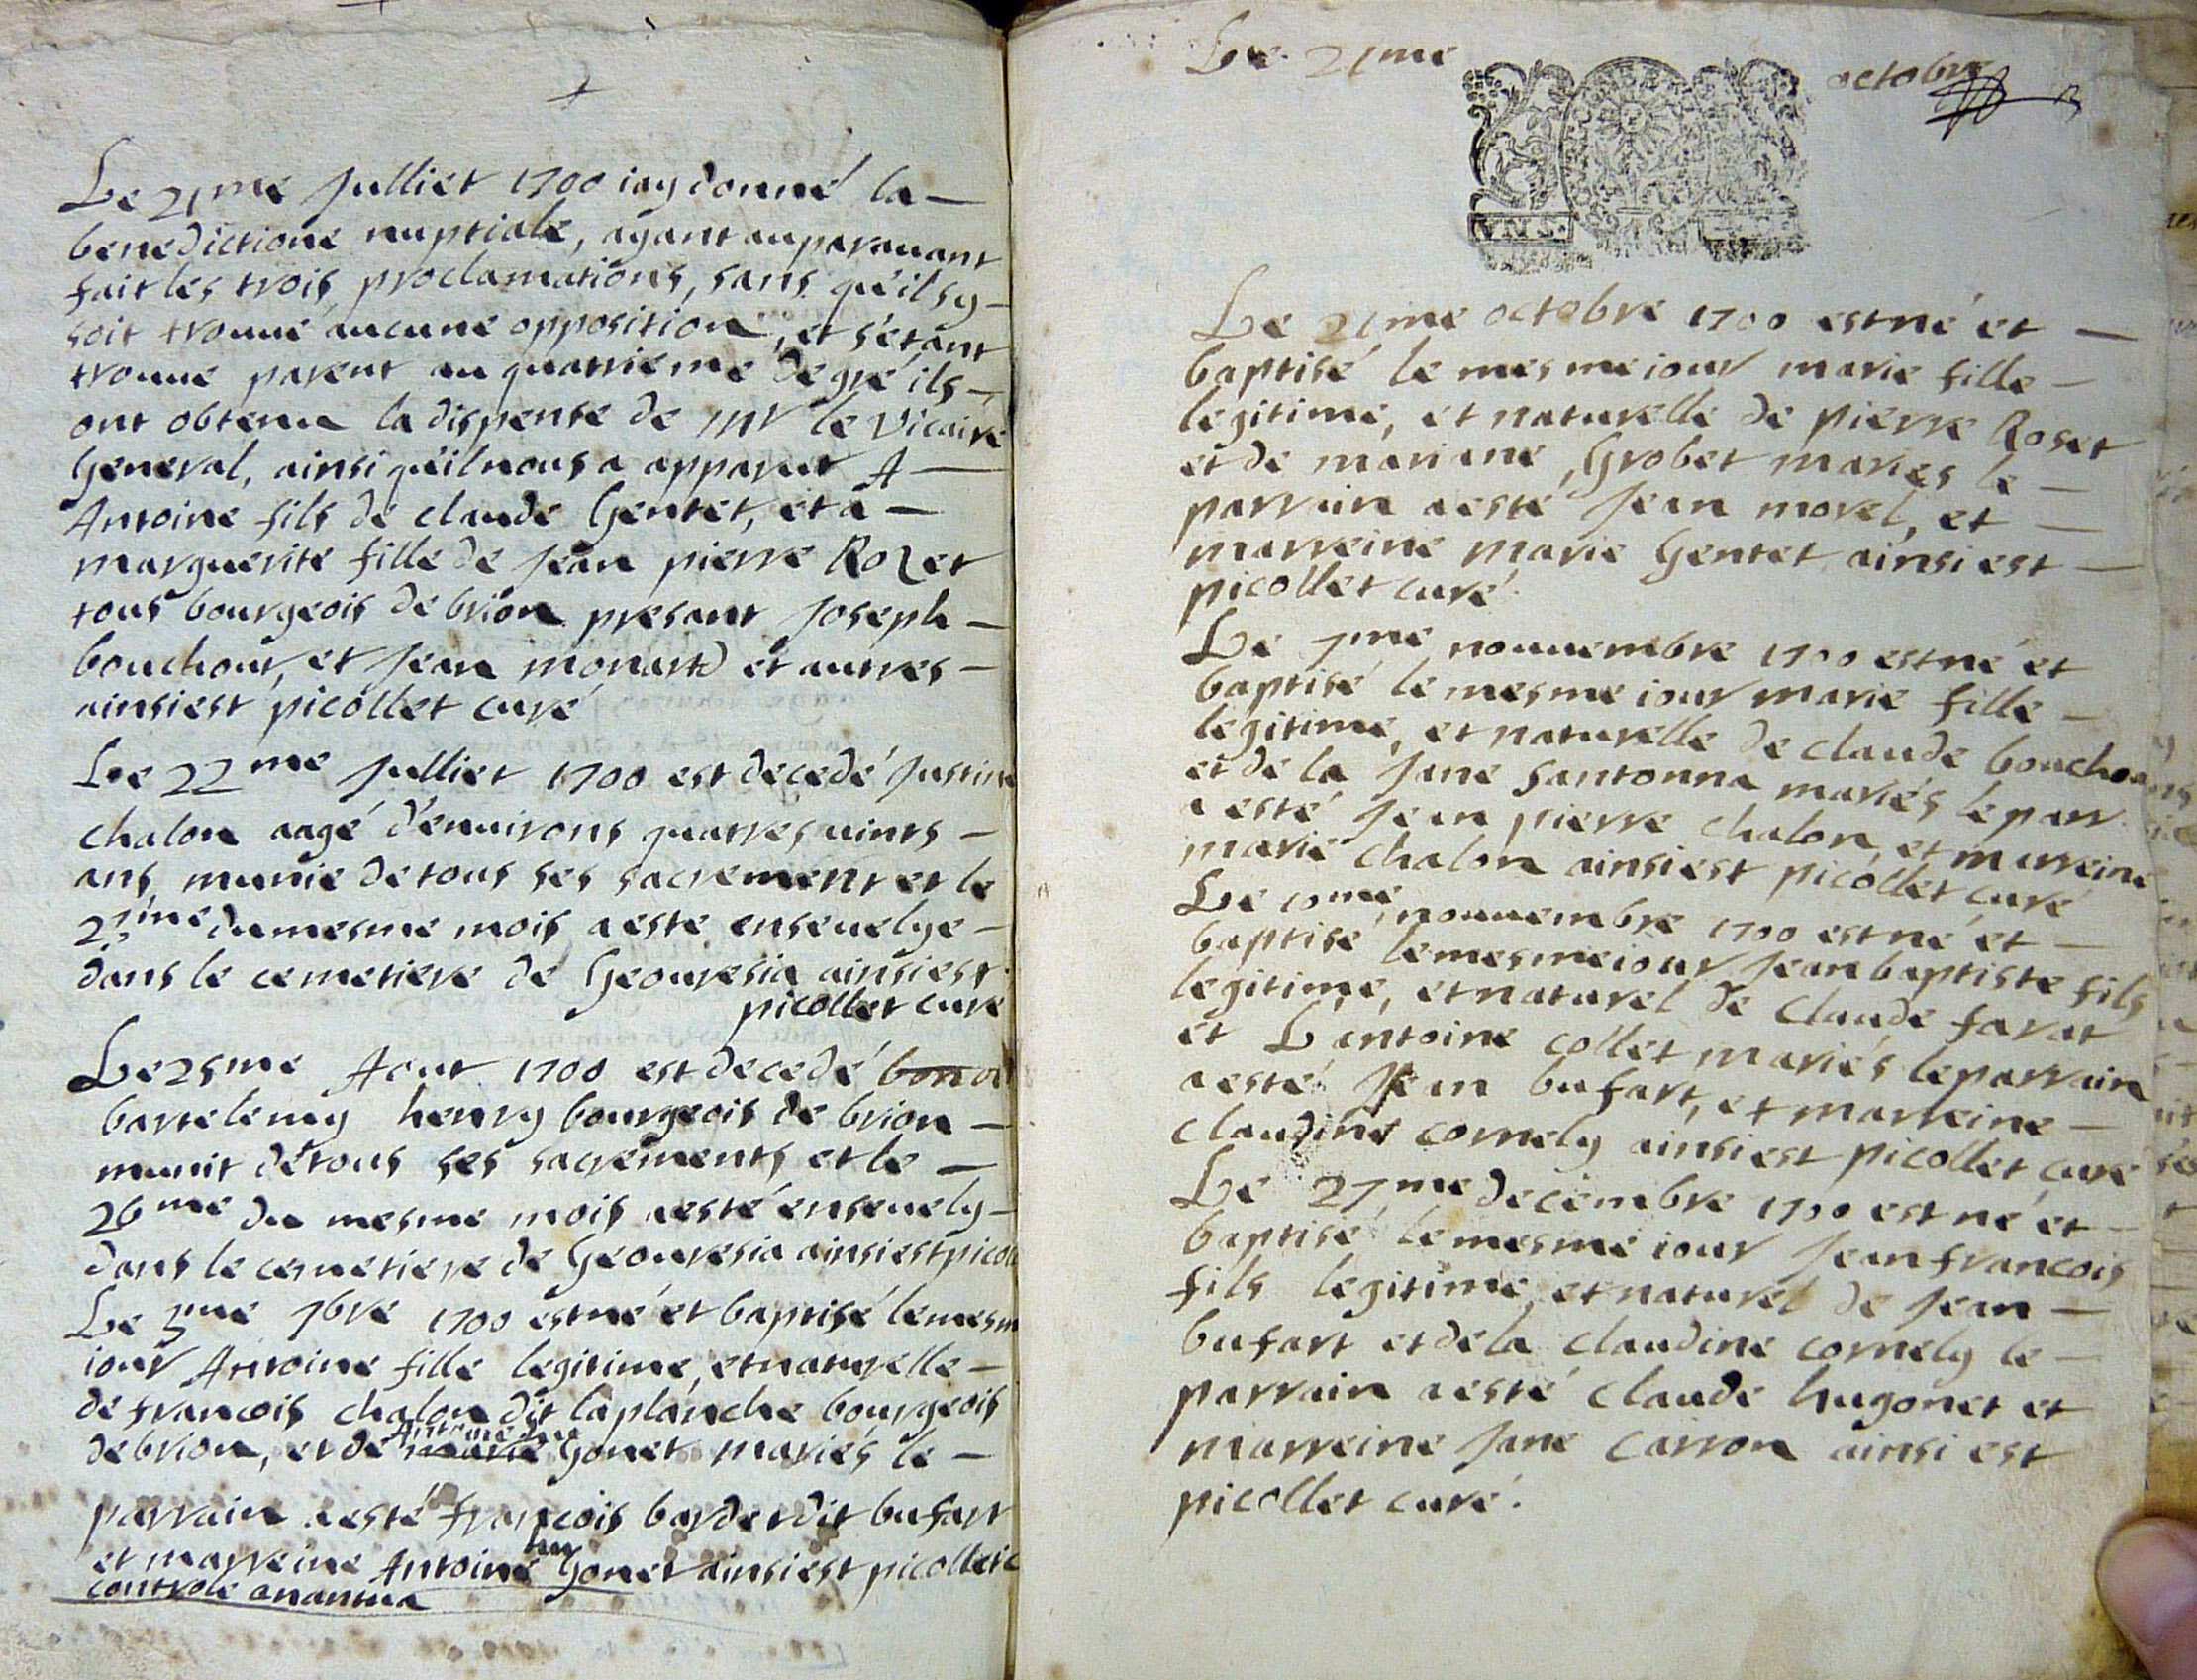 Le 21me Julliet 1700 iay donné la
benedictione nuptiale, ayant auparauant
fait les trois proclamations, sans qu'il sy
soit trouué aucune opposition, et s'etant
trouue parent au quatrieme degré ils
ont obtenu la dispense de mr le Vicaire
General, ainsi qu'il nous a apparut A
Antoine fils de claude Gentet, et a
marguerite fille de Jean pierre Rozet
tous bourgeois de brion presant Joseph
bouchour, et Jean monard et autres
ainsi est picollet curé
Le 22me Julliet 1700 est decedé Justine
chalon aagé d'enuirons quatres uints
ans, munie de tous ses sacrement et le
23me du mesme mois a este enseuelye
dans le cemetiere de Geouresia ainsi est
picollet curé
Le 25me Aout 1700 est decedé
bartelemy henry bourgeois de brion
munit de tous ses sacrements et le
26me du mesme mois a esté enseuely
dans le cemetiere de Geouresia ainsi est pico
Le 3me 7bre 1700 est né et baptisé le mesm
iour Antoine fille legitime, et naturelle
de francois chalon dit la planche bourgeois
de brion, et de marie Gonet mariés le
parrain a esté francois bardet dit bufart
et marreine Antoine Gonet ainsi est picollet c
controlé a nantua
Le 21me octobre
VNS
Le 21me octobre 1700 est né et
baptisé le mesme iour marie fille
legitime, et naturelle de pierre Roset
et de mariane Grobet maries le
parrain a esté Jean morel, et
marreine marie Gentet ainsi est
picollet curé
Le 7me nouuembre 1700 est né et
baptisé le mesme iour marie fille
legitime, et naturelle de claude bouchou
et de la Jane santonna mariés le parr
a esté Jean pierre chalon, et marreine
marie chalon ainsi est picollet curé
Le 10me nouuembre 1700 est né et
baptisé le mesme iour Jean baptiste fils
legitime, et naturel de claude favat
et L'antoine collet mariés le parrain
a esté Jean bufart, et marreine
claudine cornely ainsi est picollet curé
Le 27me decembre 1700 est né et
baptisé le mesme iour Jean francois
fils legitime, et naturel de Jean
bufart et de la claudine cornely le
parrain a esté claude hugonet et
marreine Jane carron ainsi est
picollet curé.